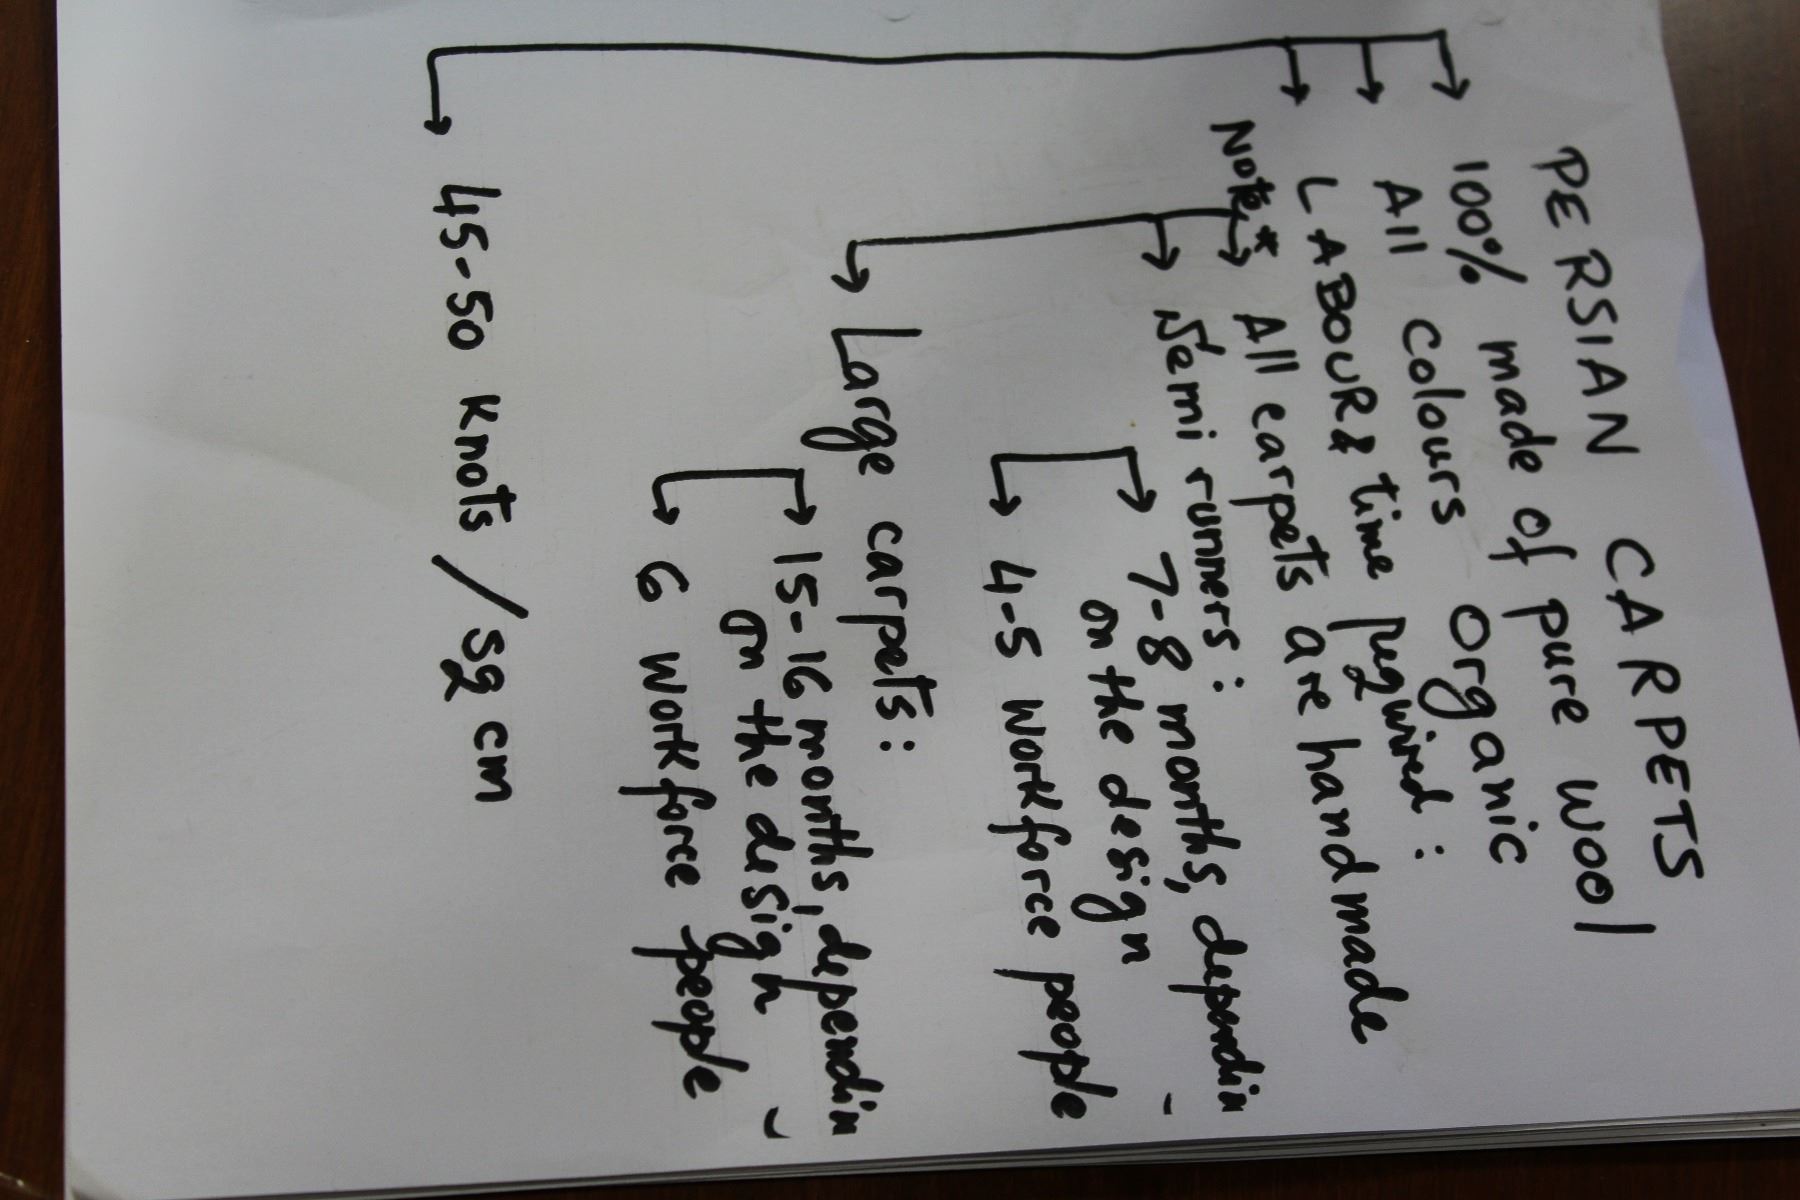 PERSIAN CARPETS
100% made of pure wool
All colours organic
LABOUR & time required :
Note * All carpets are handmade
Semi runners :
7-8 months, dependin
on the design
4-5 workforce people
Large carpets :
15-16 months, dependin
on the design
6 workforce people
45-50 knots / sq cm